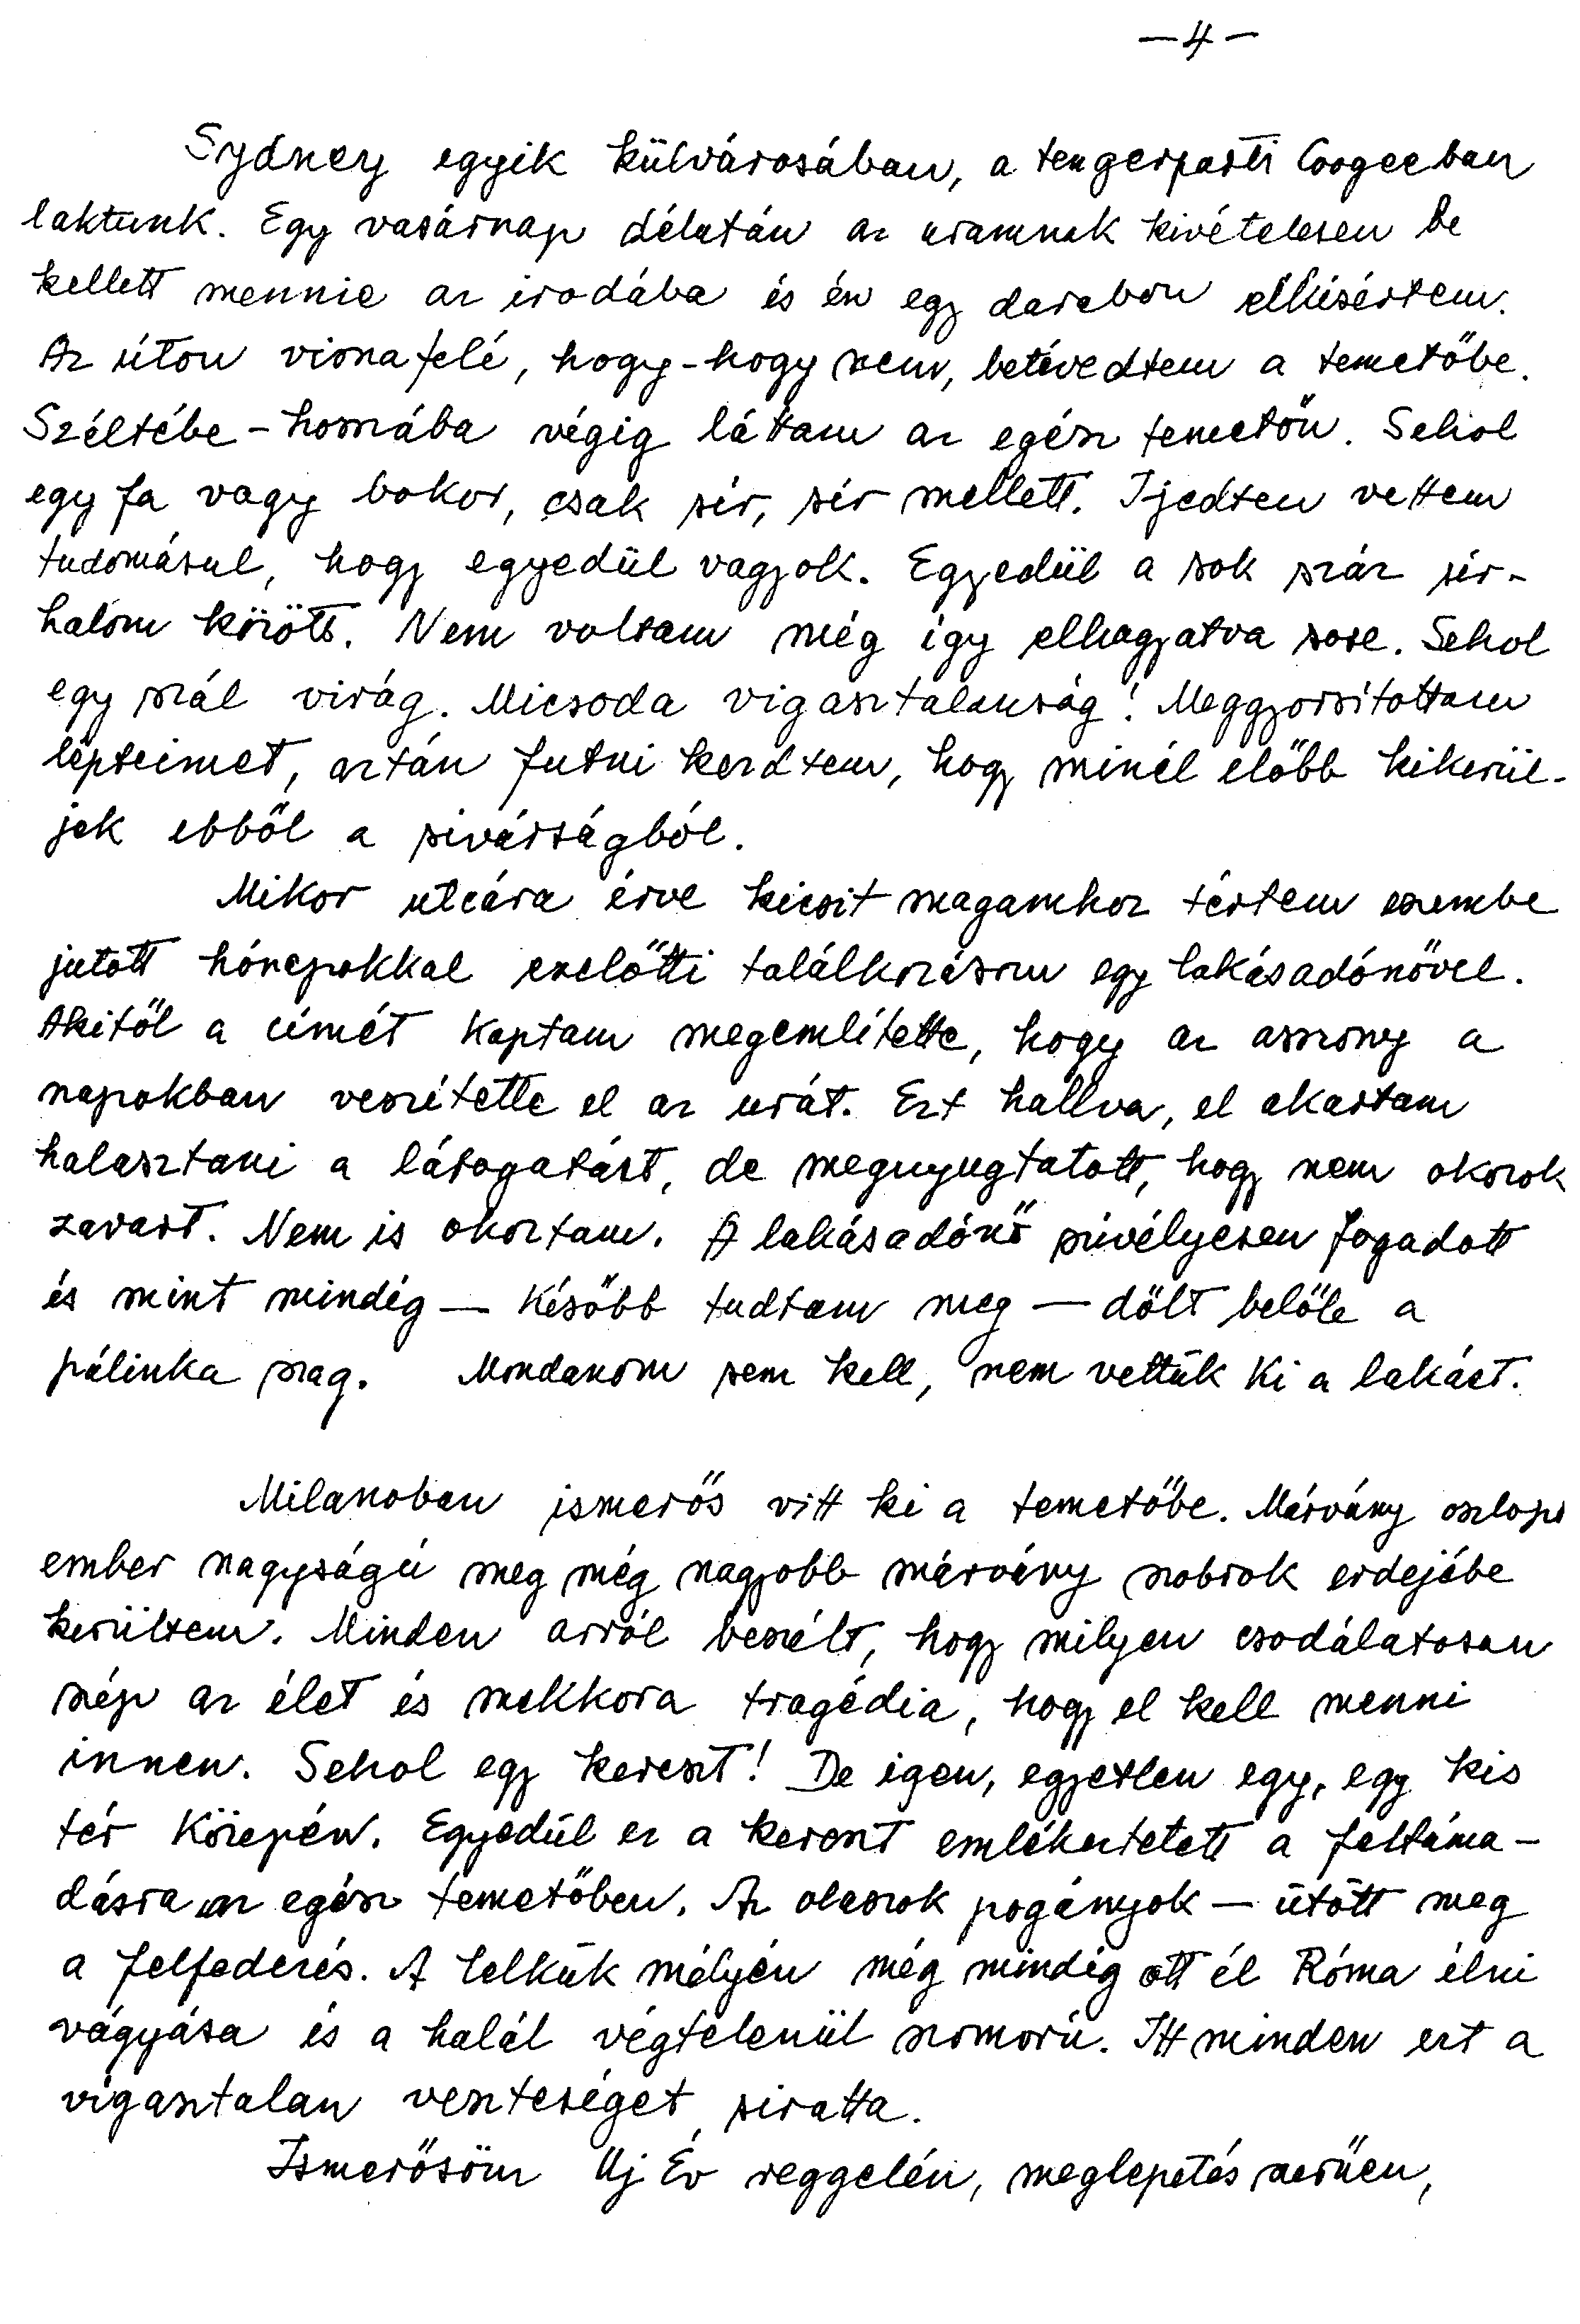 —4—
Sydney egyik külvárosában, a tengerparti Coogeeban
laktunk. Egy vasárnap délután az uramnak kivételesen be
kellett mennie az irodába és én egy darabon elkisértem.
Az úton visszafelé, hogy-hogy nem, betévedtem a temetőbe.
Széltébe-hosszába végig láttam az egész temetőn. Sehol
egy fa vagy bokor, csak sír, sír mellett. Ijedten vettem
tudomásul, hogy egyedül vagyok. Egyedül a sok száz sír-
halom között. Nem voltam még így elhagyatva sose. Sehol
egy szál virág. Micsoda vigasztalanság! Meggyorsítottam
lépteimet, aztán futni kezdtem, hogy minél előbb kikerül-
jek ebből a sivárságból.
Mikor utcára érve kicsit magamhoz tértem eszembe
jutott hónapokkal ezelőtti találkozásom egy lakásadónővel.
Akitől a címét kaptam megemlítette, hogy az asszony a
napokban veszítette el az urát. Ezt hallva, el akartam
halasztani a látogatást, de megnyugtatott, hogy nem okozok
zavart. Nem is okoztam. A lakásadónő szívélyesen fogadott
és mint mindég — később tudtam meg — dőlt belőle a
pálinka szag. Mondanom sem kell, nem vettük ki a lakást.
Milanoban ismerős vitt ki a temetőbe. Márvány oszlopos
ember nagyságú meg még nagyobb márvány szobrok erdejébe
kerültem. Minden arról beszélt, hogy milyen csodálatosan
szép az élet és mekkora tragédia, hogy el kell menni
innen. Sehol egy kereszt! De igen, egyetlen egy, egy kis
tér közepén. Egyedül ez a kereszt emlékeztetett a feltáma-
dásra az egész temetőben. Az olaszok pogányok — ütött meg
a felfedezés. A lelkük mélyén még mindég ott él Róma élni
vágyása és a halál végtelenül szomorú. Itt minden ezt a
vigasztalan veszteséget siratta.
Ismerősöm Uj Év reggelén, meglepetés szerűen,